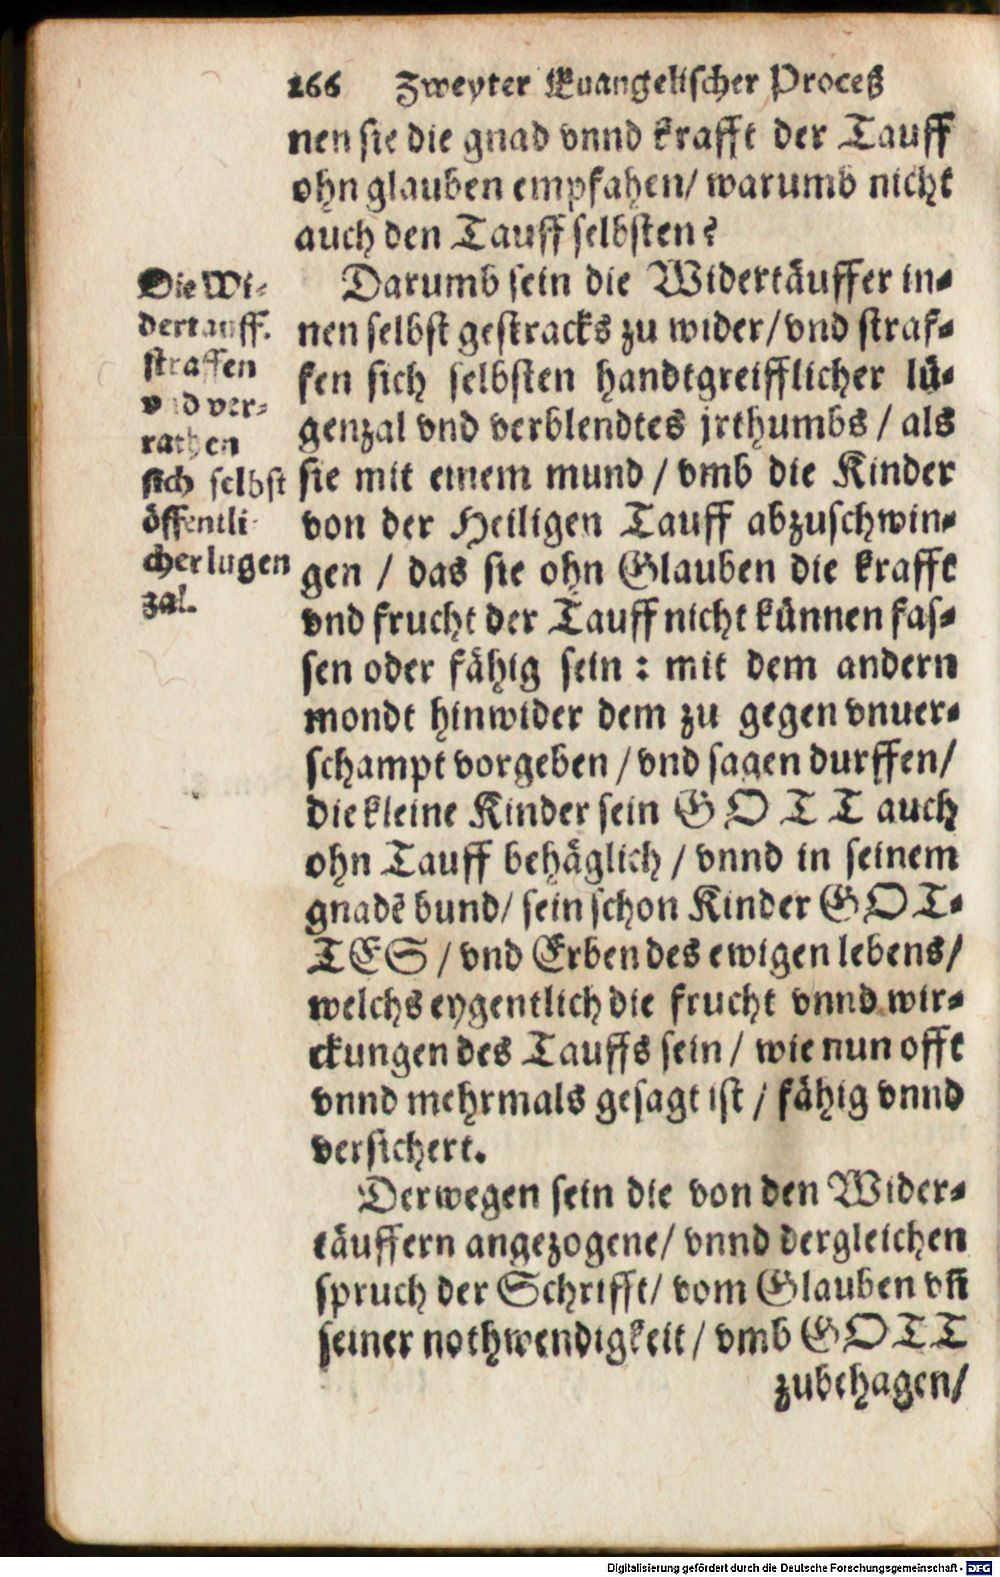 266 Zweyter Euangelischer Proceß
nen sie die gnad vnnd krafft der Tauff
ohn glauben empfahen/ warumb nicht
auch den Tauff selbsten?
Darumb sein die Widertäuffer in-
nen selbst gestracks zu wider/ vnd straf-
fen sich selbsten handtgreifflicher lü-
genzal vnd verblendtes jrthumbs / als
sie mit einem mund / vmb die Kinder
von der Heiligen Tauff abzuschwin-
gen / das sie ohn Glauben die krafft
vnd frucht der Tauff nicht künnen fas-
sen oder fähig sein : mit dem andern
mondt hinwider dem zu gegen vnuer-
schampt vorgeben / vnd sagen durffen/
die kleine Kinder sein GOTT auch
ohn Tauff behäglich / vnnd in seinem
gnadē bund/ sein schon Kinder GOT-
TES / vnd Erben des ewigen lebens/
welchs eygentlich die frucht vnnd wir-
ckungen des Tauffs sein / wie nun offt
vnnd mehrmals gesagt ist / fähig vnnd
versichert.
Derwegen sein die von den Wider-
täuffern angezogene/ vnnd dergleichen
spruch der Schrifft/ vom Glauben vñ
seiner nothwendigkeit/ vmb GOTT
zubehagen/
Die Wi-
dertauff.
straffen
vnd ver-
rathen
sich selbst
öffentli-
cher lugen
zal.
Digitalisierung gefördert durch die Deutsche Forschungsgemeinschaft - DFG